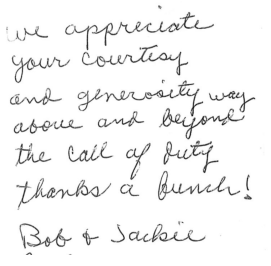 we appreciate
your courtesy
and generosity way
above and beyond
the call of duty
thanks a bunch!
Bob & Jackie